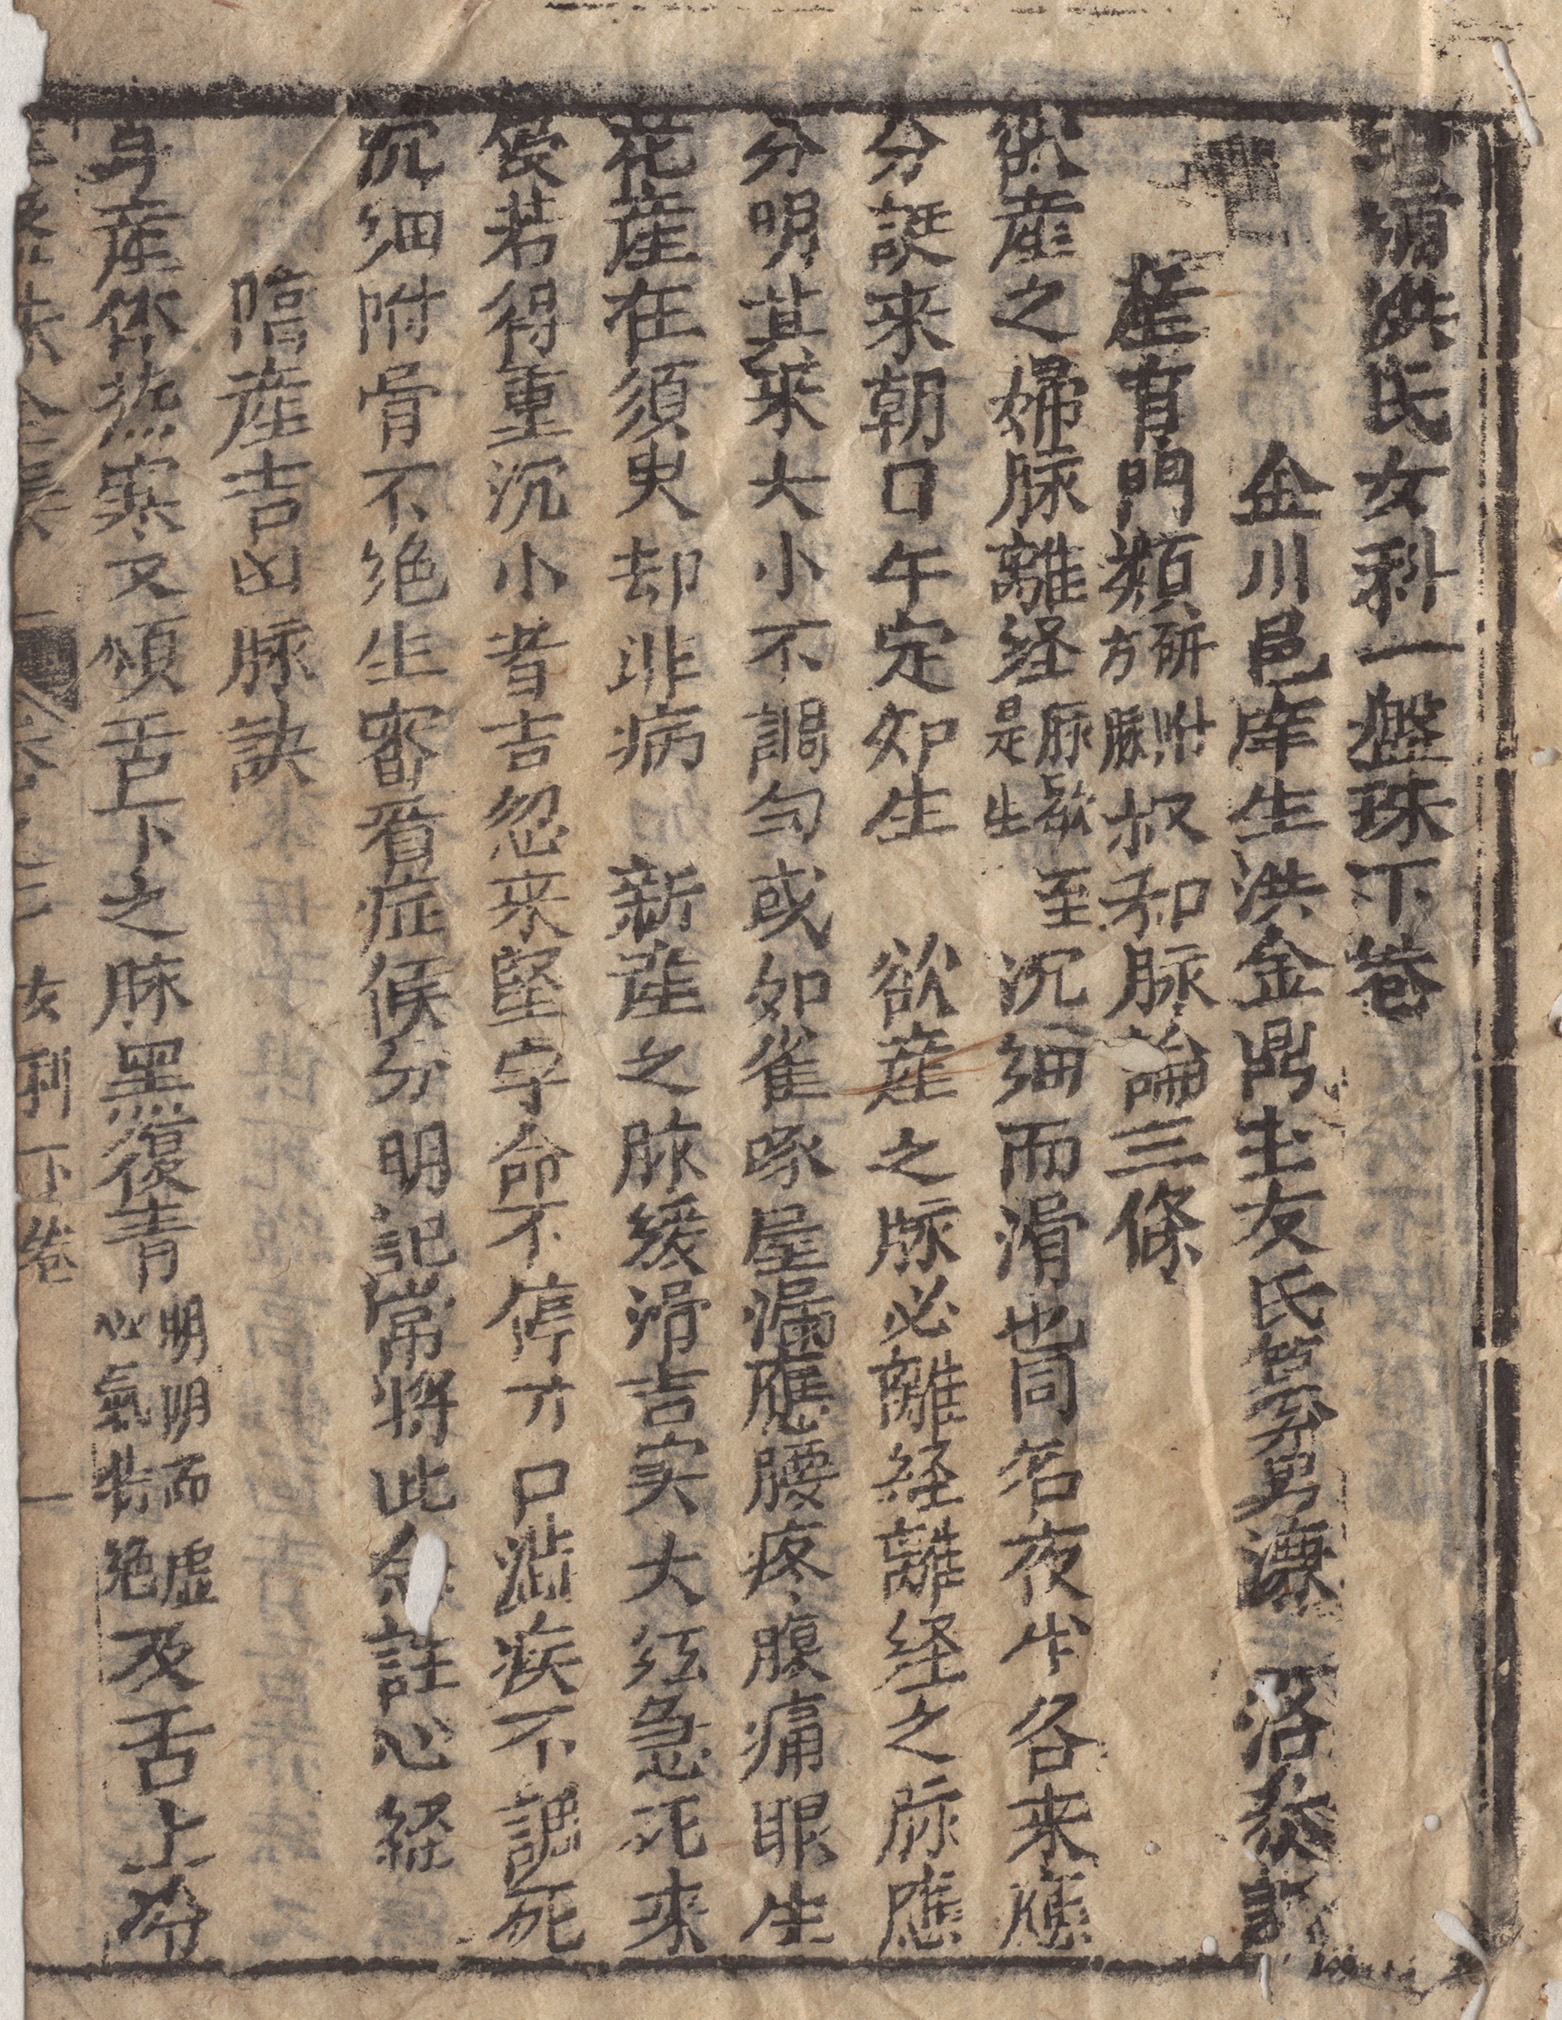 增補洪氏女科一盤珠下卷
金川邑庠生洪金鼎玉友氏纂男濂洛泰訂
產育門類研方附脉叔和脉論三條
欲產之婦脉離経脉欲是生至沉細而滑也同名夜半各來應
分誕来朝日午定知生 欲產之脉必離経離経之脉應
分明其来大小不調勻或如雀啄屋漏應腰疼腹痛眼生
花產在須臾却非病 新產之脉緩滑吉实大弦急死来
侵若得重沉小者吉忽来堅牢命不停寸口澁疾不調死
沉细附骨不绝生審看症候分明記常將此註心経
隔產吉凶脉訣
身產体热寒又頻舌下之脉黑復青明阴而虚心氣特绝及舌上冷
女科下卷 一